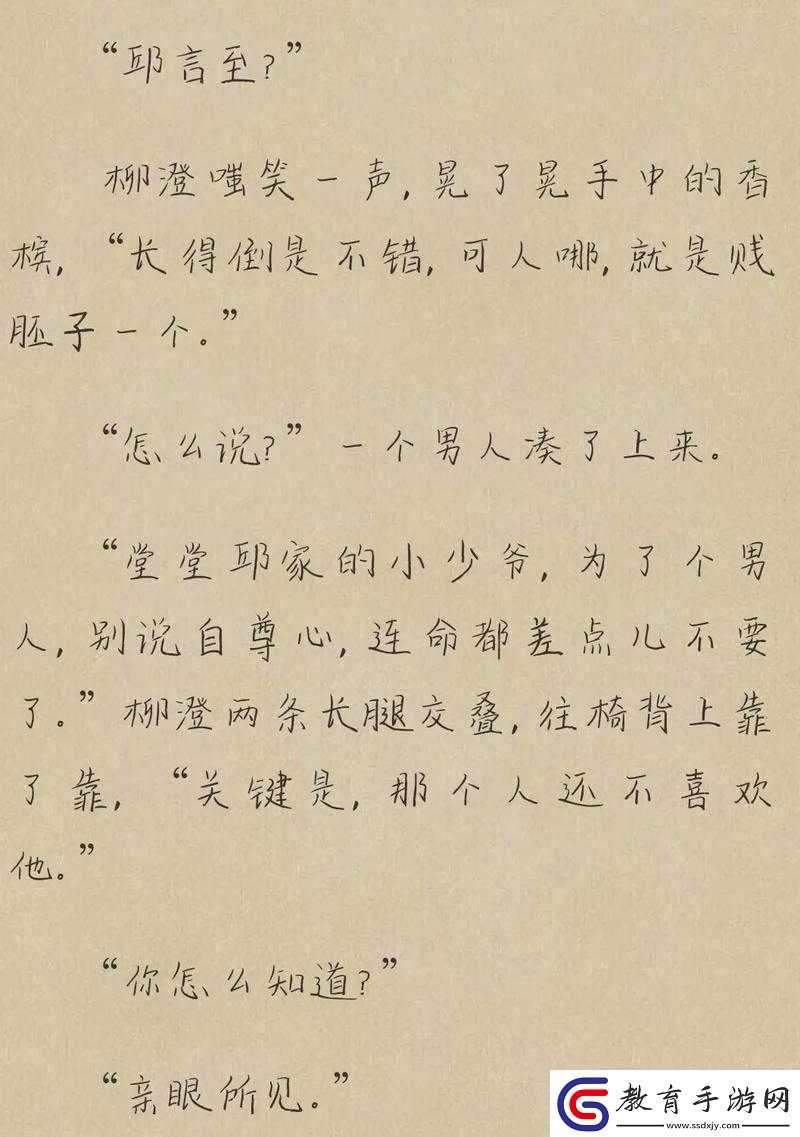 “邱言至?”
柳澄嗤笑一声,晃了晃手中的香
槟,“长得倒是不错,可人哪,就是贱
胚子一个。”
“怎么说?”一个男人凑了上来。
“堂堂邱家的小少爷,为了个男
人,别说自尊心,连命都差点儿不要
了。”柳澄两条长腿交叠,往椅背上靠
了靠,“关键是,那个人还不喜欢
他。”
“你怎么知道?”
“亲眼所见。”
教育手游网
www.ssdxjy.com